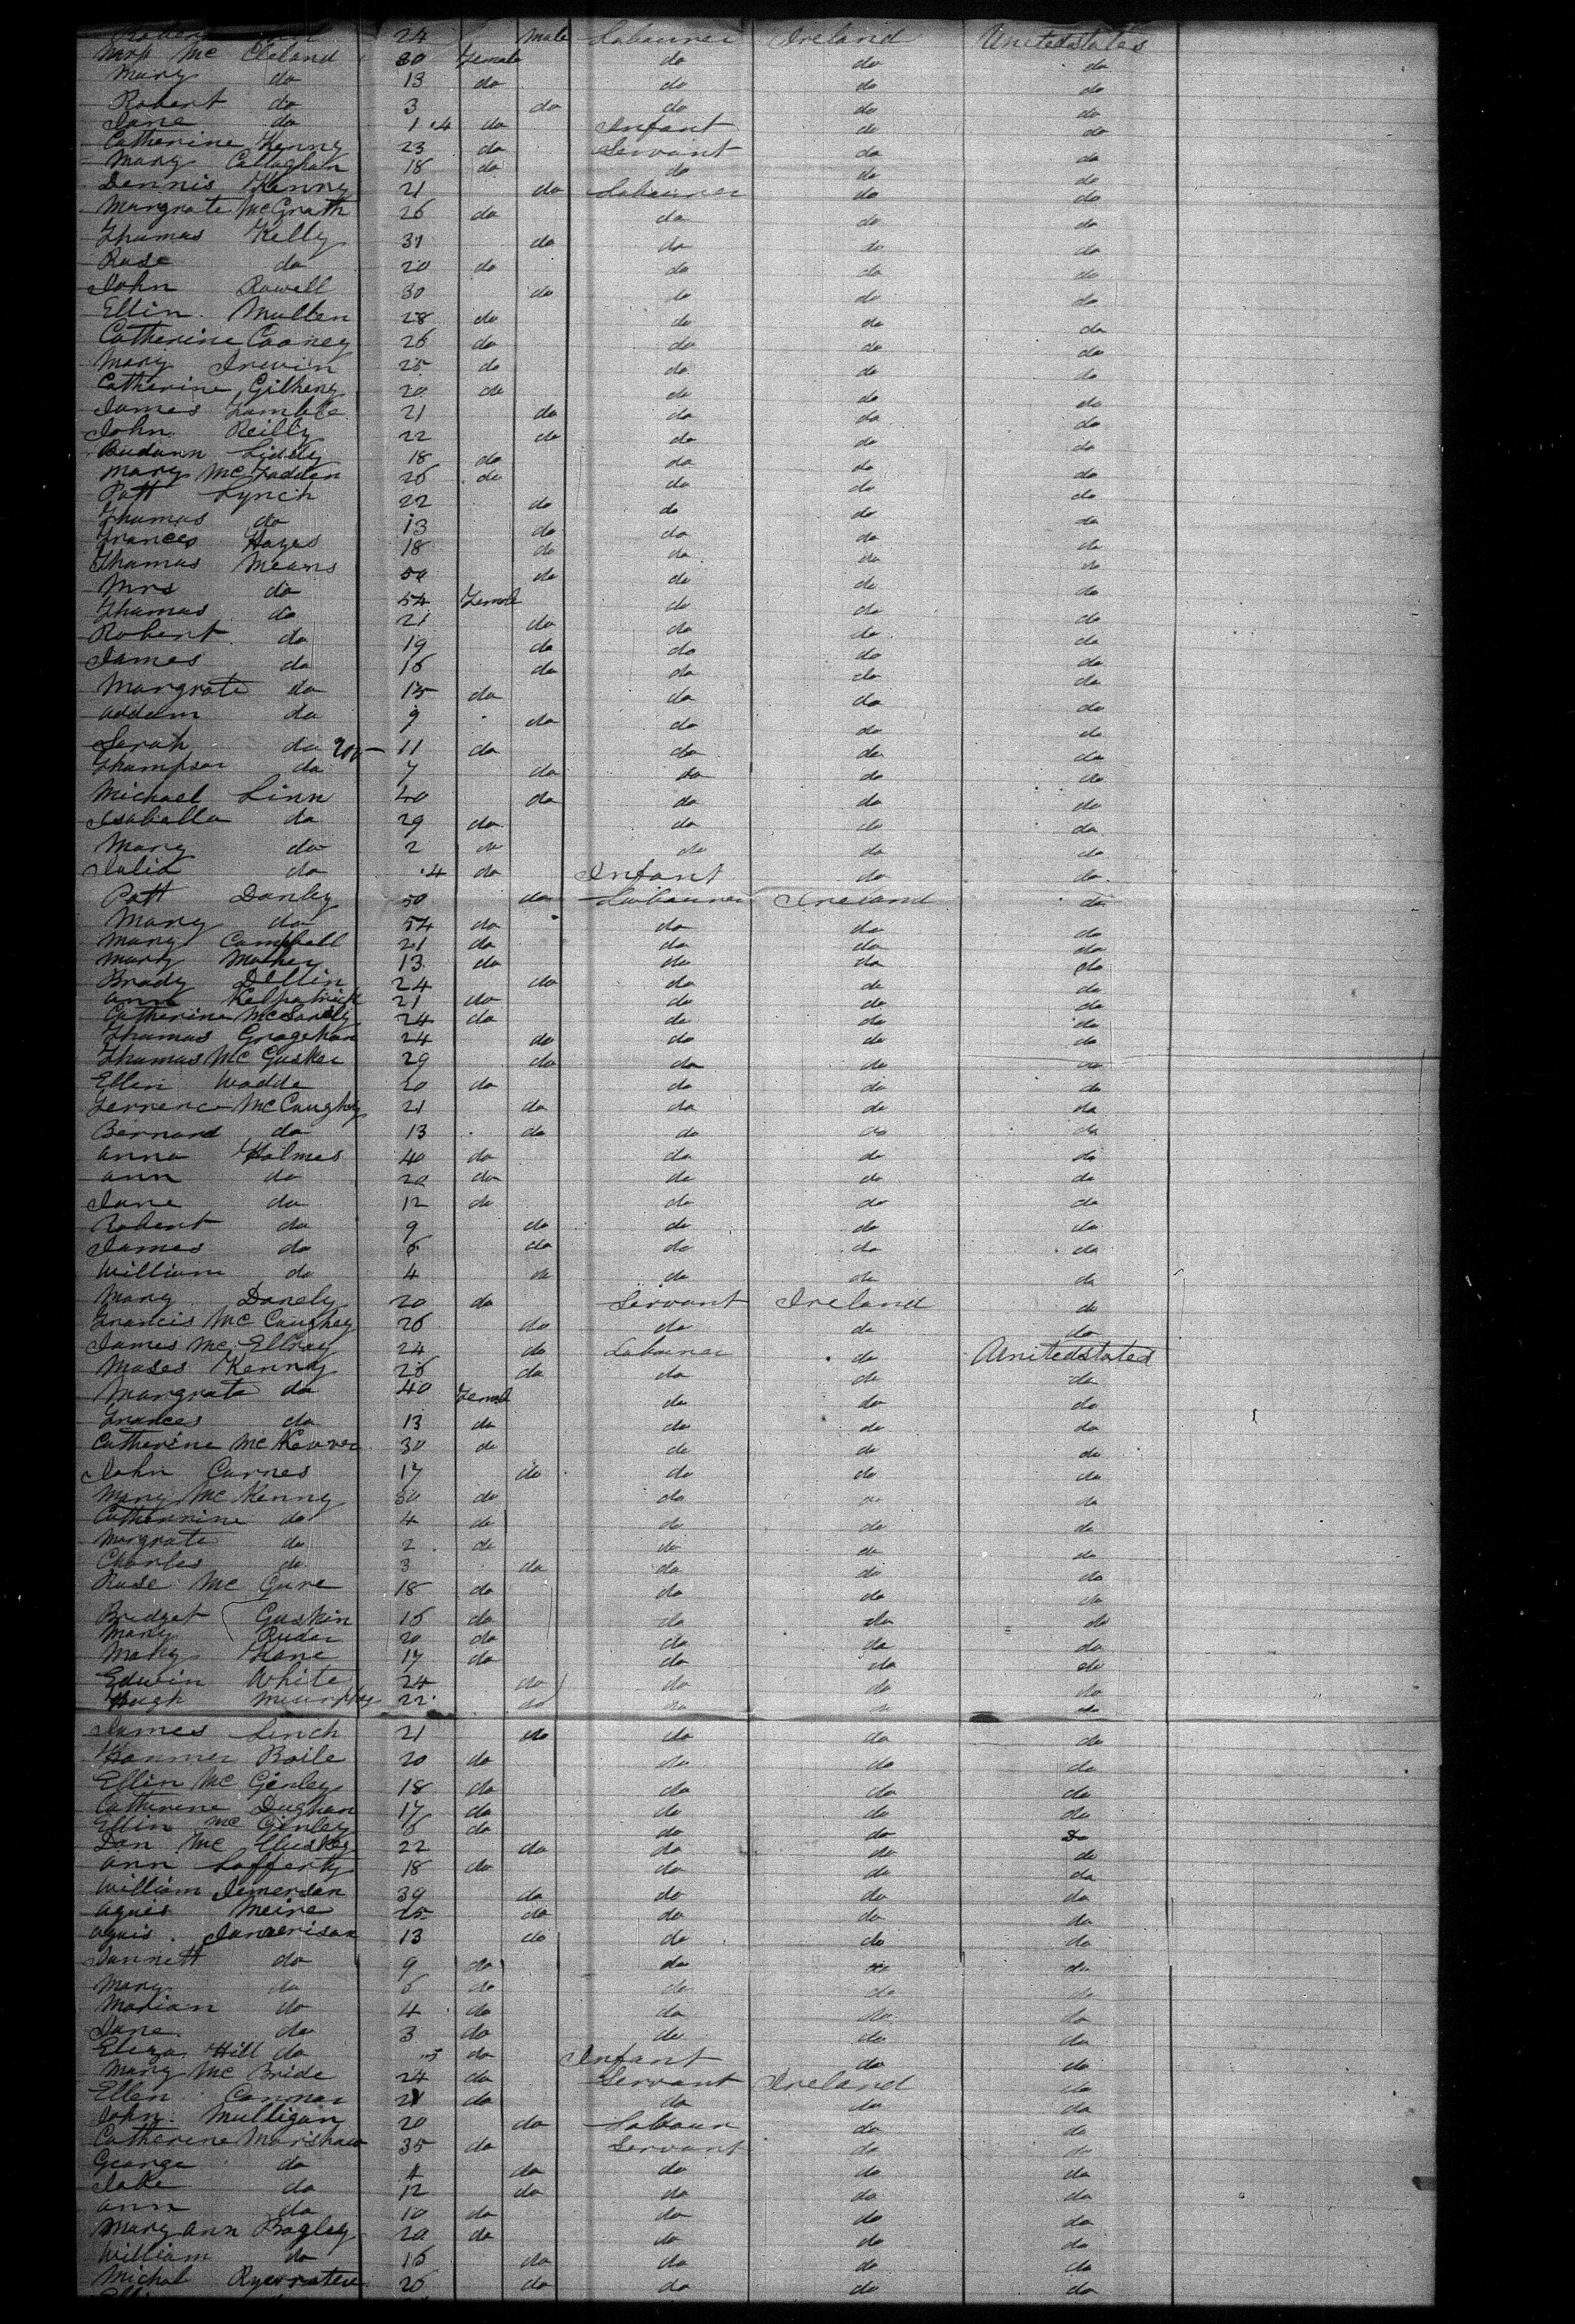 24 Male Labourer Ireland Unitedstates
Mrs Mc Cleland 30 Female do do do
Mary do 13 do do do do
Robert do 3 do do do do
Jane do 1.4 do Infant do do
Catherine Kenny 23 do Servant do do
Mary Callaghan 18 do do do do
Dennis Kenny 21 do Labourer do do
Margrate McGrath 26 do do do do
Thomas Kelly 31 do do do do
Rose do 20 do do do do
John Rowell 30 do do do do
Ellin Mullen 28 do do do do
Catherine Cooney 26 do do do do
Mary Irwin 25 do do do do
Catherine Gilheny 20 do do do do
James 21 do do do do
John Reilly 22 do do do do
Liddy 18 do do do do
Mary McFadden 26 do do do do
Patt Lynch 22 do do do do
Thomas do 13 do do do do
Frances Hayes 18 do do do do
Thomas Means 50 do do do do
Mrs do 54 Female do do do
Thomas do 21 do do do do
Robert do 19 do do do do
James do 16 do do do do
Margrate do 15 do do do do
Addam do 9 do do do do
Sarah do 200 11 do do do do
Thompson do 7 do do do do
Michael Linn 40 do do do do
Isabella do 29 do do do do
Mary do 2 do do do do
Julia do .4 do Infant do do
Patt Donley 50 do Labourer Ireland do
Mary do 54 do do do do
Mary Campbell 21 do do do do
Mary 13 do do do do
Brady Dellin 24 do do do do
Ann Kelpatrick 21 do do do do
Catherine 24 do do do do
Thomas Grogehan 24 do do do do
Thomas Mc Gusker 29 do do do do
Ellen Wadde 20 do do do do
Terrence McCaughey 21 do do do do
Bernard do 13 do do do do
Anna Holmes 40 do do do do
Ann do 20 do do do do
Jane do 12 do do do do
Robert do 9 do do do do
James do 6 do do do do
William do 4 do do do do
Mary Donely 20 do Servant Ireland do
Francis Mc Caughey 26 do do do do
James Mc Ellroy 24 do Labourer do Unitedstates
Moses Kenny 26 do do do do
Margrate do 40 Female do do do
Frances do 13 do do do do
Catherine Mc 30 do do do do
John Carnes 17 do do do do
Mary Mc Kenny 30 do do do do
Catherinine do 4 do do do do
Margrate do 2 do do do do
Charles do 3 do do do do
Rose Mc Gure 18 do do do do
Bridget Guskin 16 do do do do
Mary 20 do do do do
Mary Kane 17 do do do do
Edwin White 24 do do do do
Hugh Muurphy 22 do do do do
James Linch 21 do do do do
Boile 20 do do do do
Ellin Mc Ginley 18 do do do do
Catherine Dughan 17 do do do do
Ellin Mc Ginley 6 do do do Do
Dan Mc Cluskey 22 do do do do
Ann Lafferty 18 do do do do
William 39 do do do do
Agnes Meire 25 do do do do
13 do do do do
Jannett do 9 do do do do
Mary do 6 do do do do
Marian do 4 do do do do
Jane do 3 do do do do
Eliza Hill do .5 do Infant do do
Mary Mc Bride 24 do Servant Ireland do
Ellen 21 do do do do
John Mulligan 20 do Labour do do
Catherine Marshaw 35 do Servant do do
George do do do do do
Jake do 12 do do do do
Ann do 10 do do do do
Mary Ann Bagley 20 do do do do
William do 16 do do do do
Michal 26 do do do do